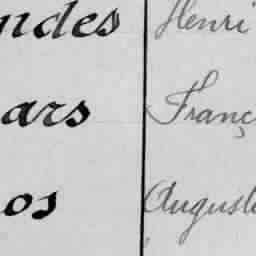 ndes Henri
ars Franç
os August